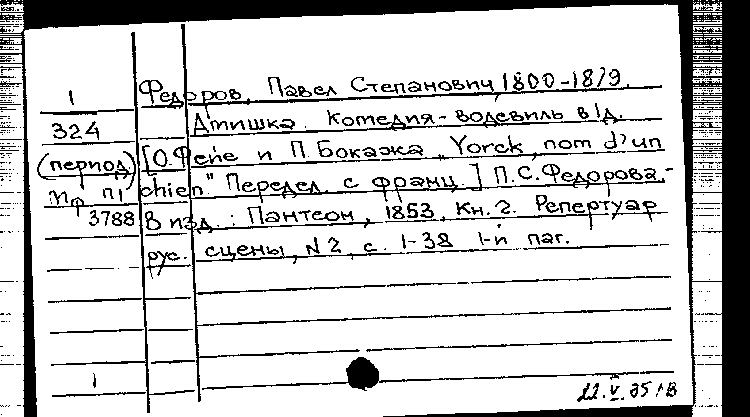 1 Федоров, Павел Степанович, 1800-1879.
324 Атишка. Комедия-водевиль в 1д.
(период) [О. Фейе и П. Бокажа „Yorck, nom d'un
Пф П1 chien" Передел. с франц.] П.С. Федорова.-
3788 В изд.: Пантеон, 1853, Кн. 2. Репертуар
рус. сцены, N 2, с. 1-38 1-й паг.
1
22.V.85 1В